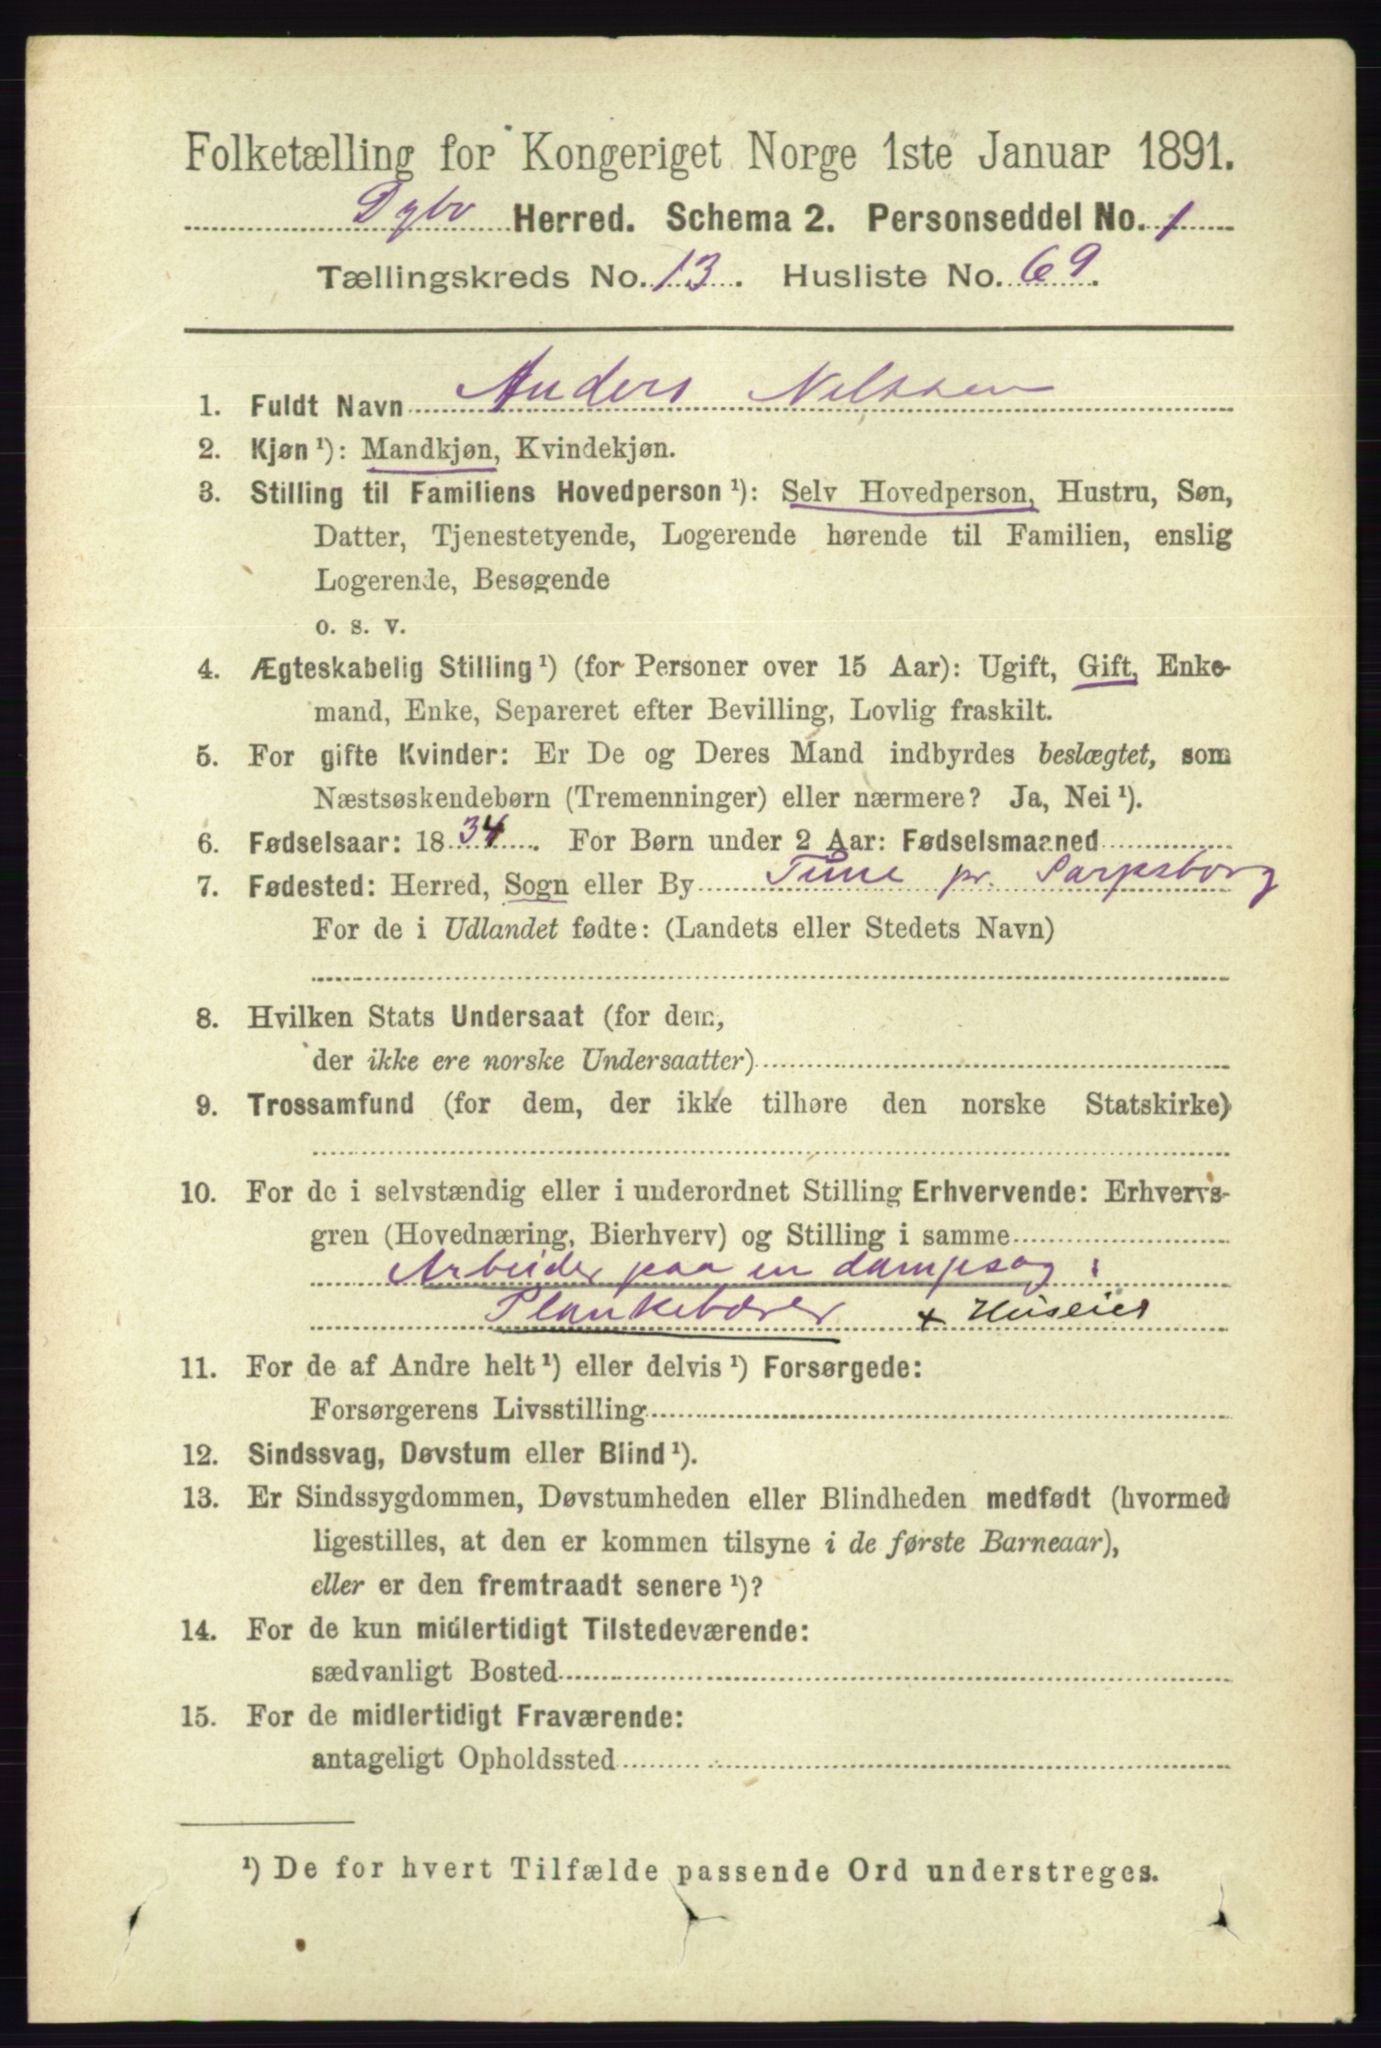 Folketælling for Kongeriget Norge 1ste Januar 1891.
Dybø Herred. Schema 2. Personseddel No. 1
Tællingskreds No. 13. Husliste No. 69.
1. Fuldt Navn Anders Nilssen
2. Kjøn ¹): Mandkjøn, Kvindekjøn.
3. Stilling til Familiens Hovedperson ¹): Selv Hovedperson, Hustru, Søn,
Datter, Tjenestetyende, Logerende hørende til Familien, enslig
Logerende, Besøgende
o. s. v.
4. Ægteskabelig Stilling ¹) (for Personer over 15 Aar): Ugift, Gift, Enke-
mand, Enke, Separeret efter Bevilling, Lovlig fraskilt.
5. For gifte Kvinder: Er De og Deres Mand indbyrdes beslægtet, som
Næstsøskendebørn (Tremenninger) eller nærmere? Ja, Nei ¹).
6. Fødselsaar: 1834. For Børn under 2 Aar: Fødselsmaaned
7. Fødested: Herred, Sogn eller By Tune pr. Sarpsborg
For de i Udlandet fødte: (Landets eller Stedets Navn)
8. Hvilken Stats Undersaat (for dem,
der ikke ere norske Undersaatter)
9. Trossamfund (for dem, der ikke tilhøre den norske Statskirke)
10. For de i selvstændig eller i underordnet Stilling Erhvervende: Erhvervs-
gren (Hovednæring, Bierhverv) og Stilling i samme
Arbeider paa en dampsag:
Plankebærer + Huseier
11. For de af Andre helt ¹) eller delvis ¹) Forsørgede:
Forsørgerens Livsstilling
12. Sindssvag, Døvstum eller Blind ¹).
13. Er Sindssygdommen, Døvstumheden eller Blindheden medfødt (hvormed
ligestilles, at den er kommen tilsyne i de første Barneaar),
eller er den fremtraadt senere ¹)?
14. For de kun midlertidigt Tilstedeværende:
sædvanligt Bosted
15. For de midlertidigt Fraværende:
antageligt Opholdssted
¹) De for hvert Tilfælde passende Ord understreges.